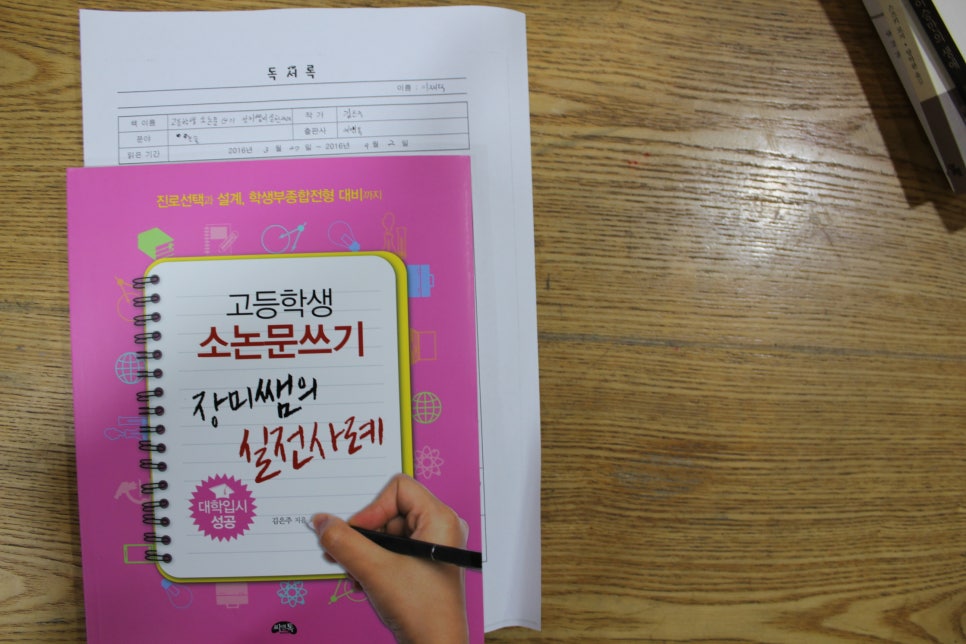 독서록
이름 :
책 이름 고등학생 소논문 쓰기 장미쌤의 실전사례 작가 김은주
분야 출판사 씨앤톡
읽은 기간 2016년 3월 20일 ~ 2016년 4월 2일
진로선택과 설계, 학생부종합전형 대비까지
고등학생
소논문쓰기
장미쌤의
실전사례
대학입시
성공
김은주 지음
씨앤톡